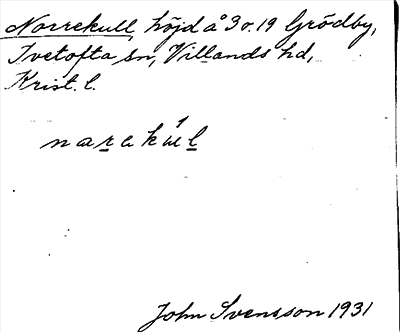 Norrekull, höjd å 3 o. 19 Grödby,
Ivetofta sn, Villands hd,
Krist. l.
narekúl
John Svensson 1931